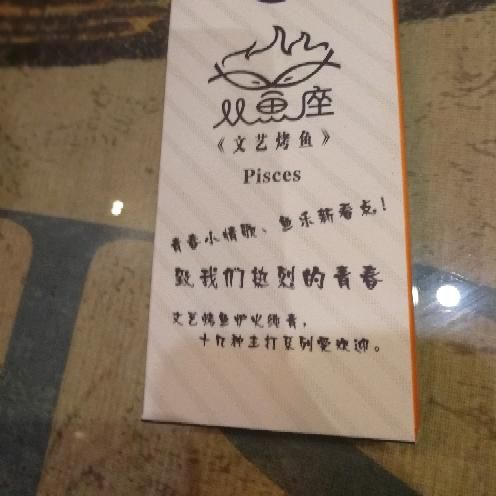 双鱼座
《文艺烤鱼》
Pisces
青春小情歌、鱼乐新看点!
致我们热烈的青春
文艺烤鱼炉火纯青,
十几种主打系列受欢迎。